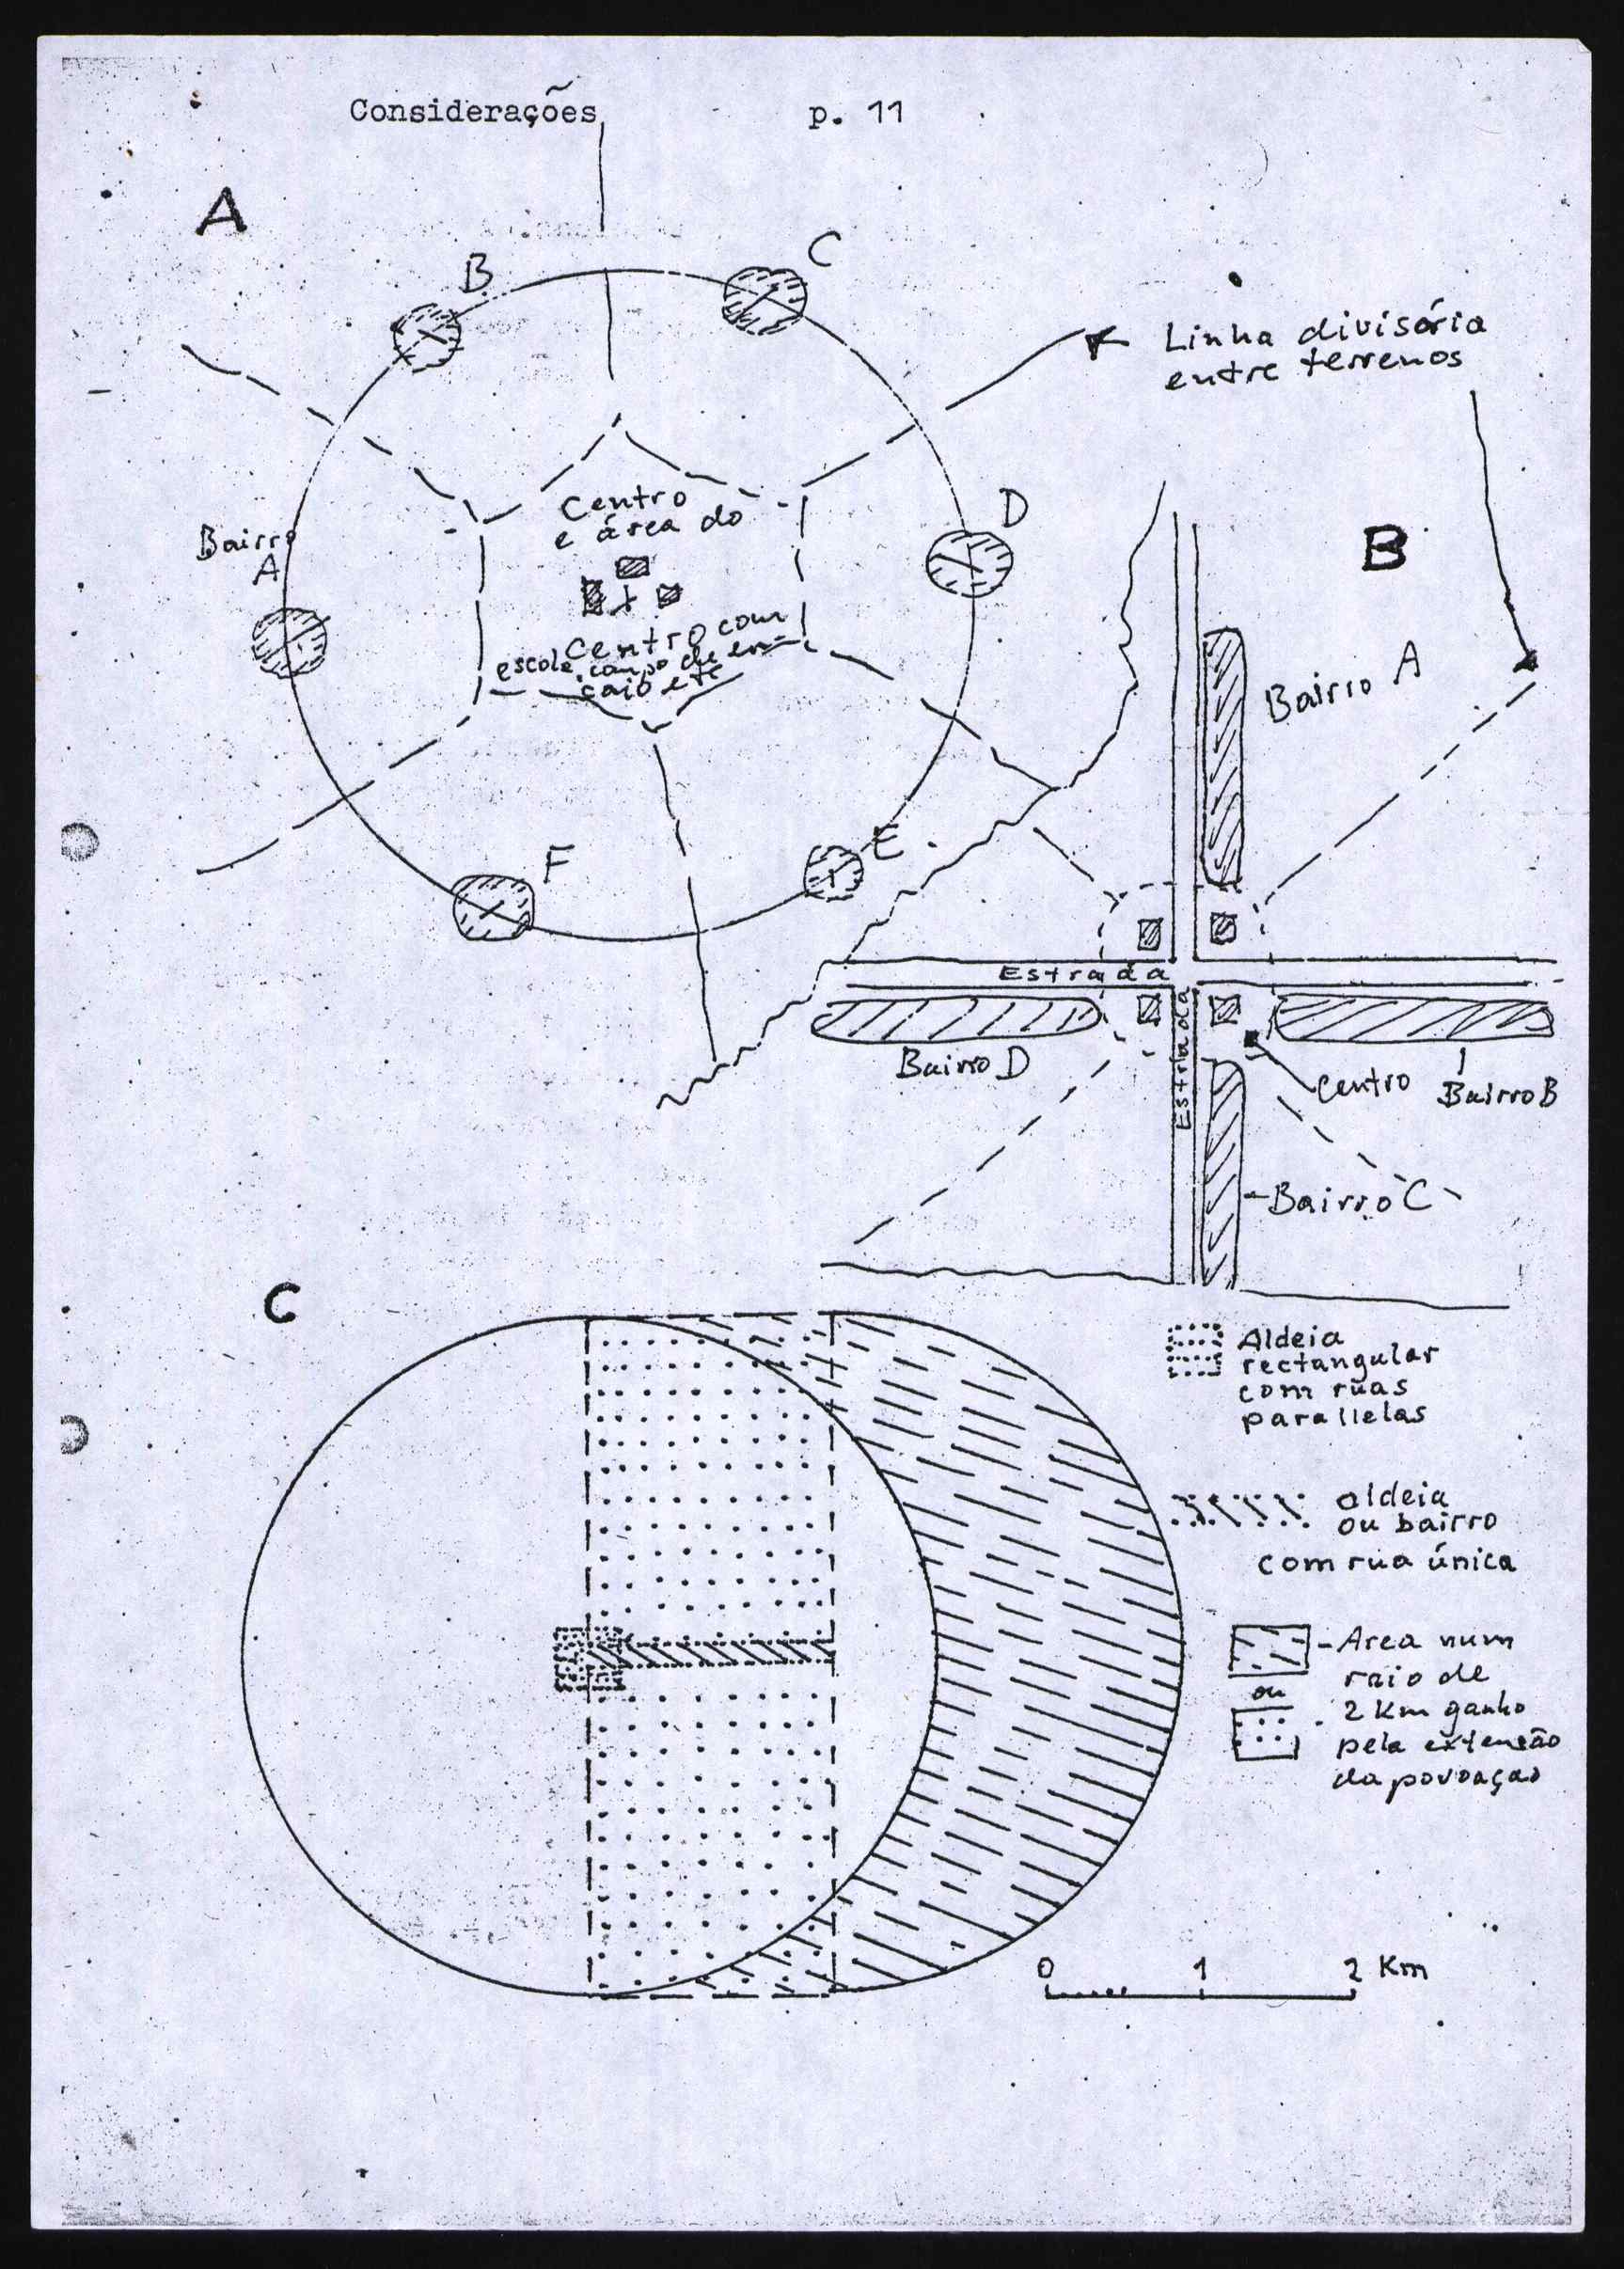 Considerações p. 11
A
B
C
Linha divisória
entre terrenos
Centro
e área do
D
Bairro
A
Centro com
escola, campo de en-
saio etc
B
Bairro A
E
F
Estrada
Estrada
Bairro D
Centro
Bairro B
Bairro C
C
Aldeia
rectangular
com ruas
parallelas
aldeia
ou bairro
com rua única
Area num
raio de
ou
2 Km ganho
pela extensão
da povoaçao
0 1 2 Km